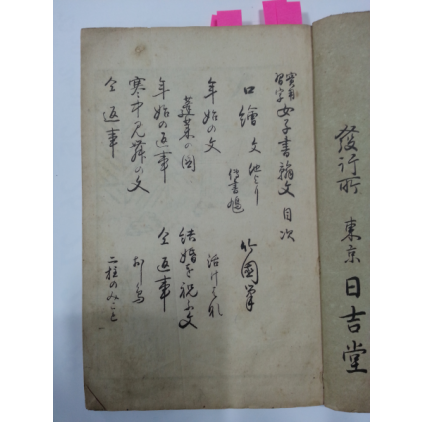 發行所 東京 日吉堂
實用習字 女子書翰文 目次
口繪 文
年始の文 活けはな
蓬莱の図 結婚を祝ふ文
年始の返事 仝返事
寒中見舞の文
仝返事 二柱のみこと